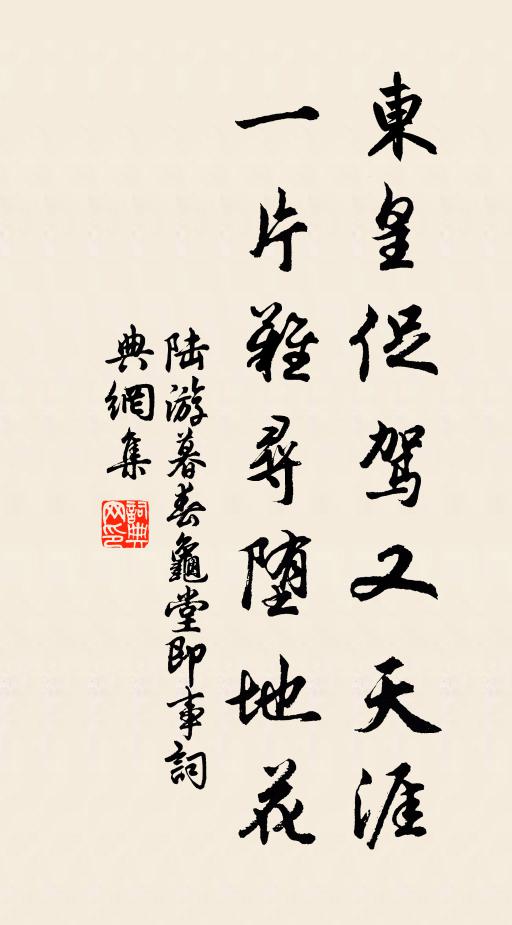 東皇促駕又天涯
一片難尋堕地花
陆游暮春龜堂即事詞
典網集
詞典
网印